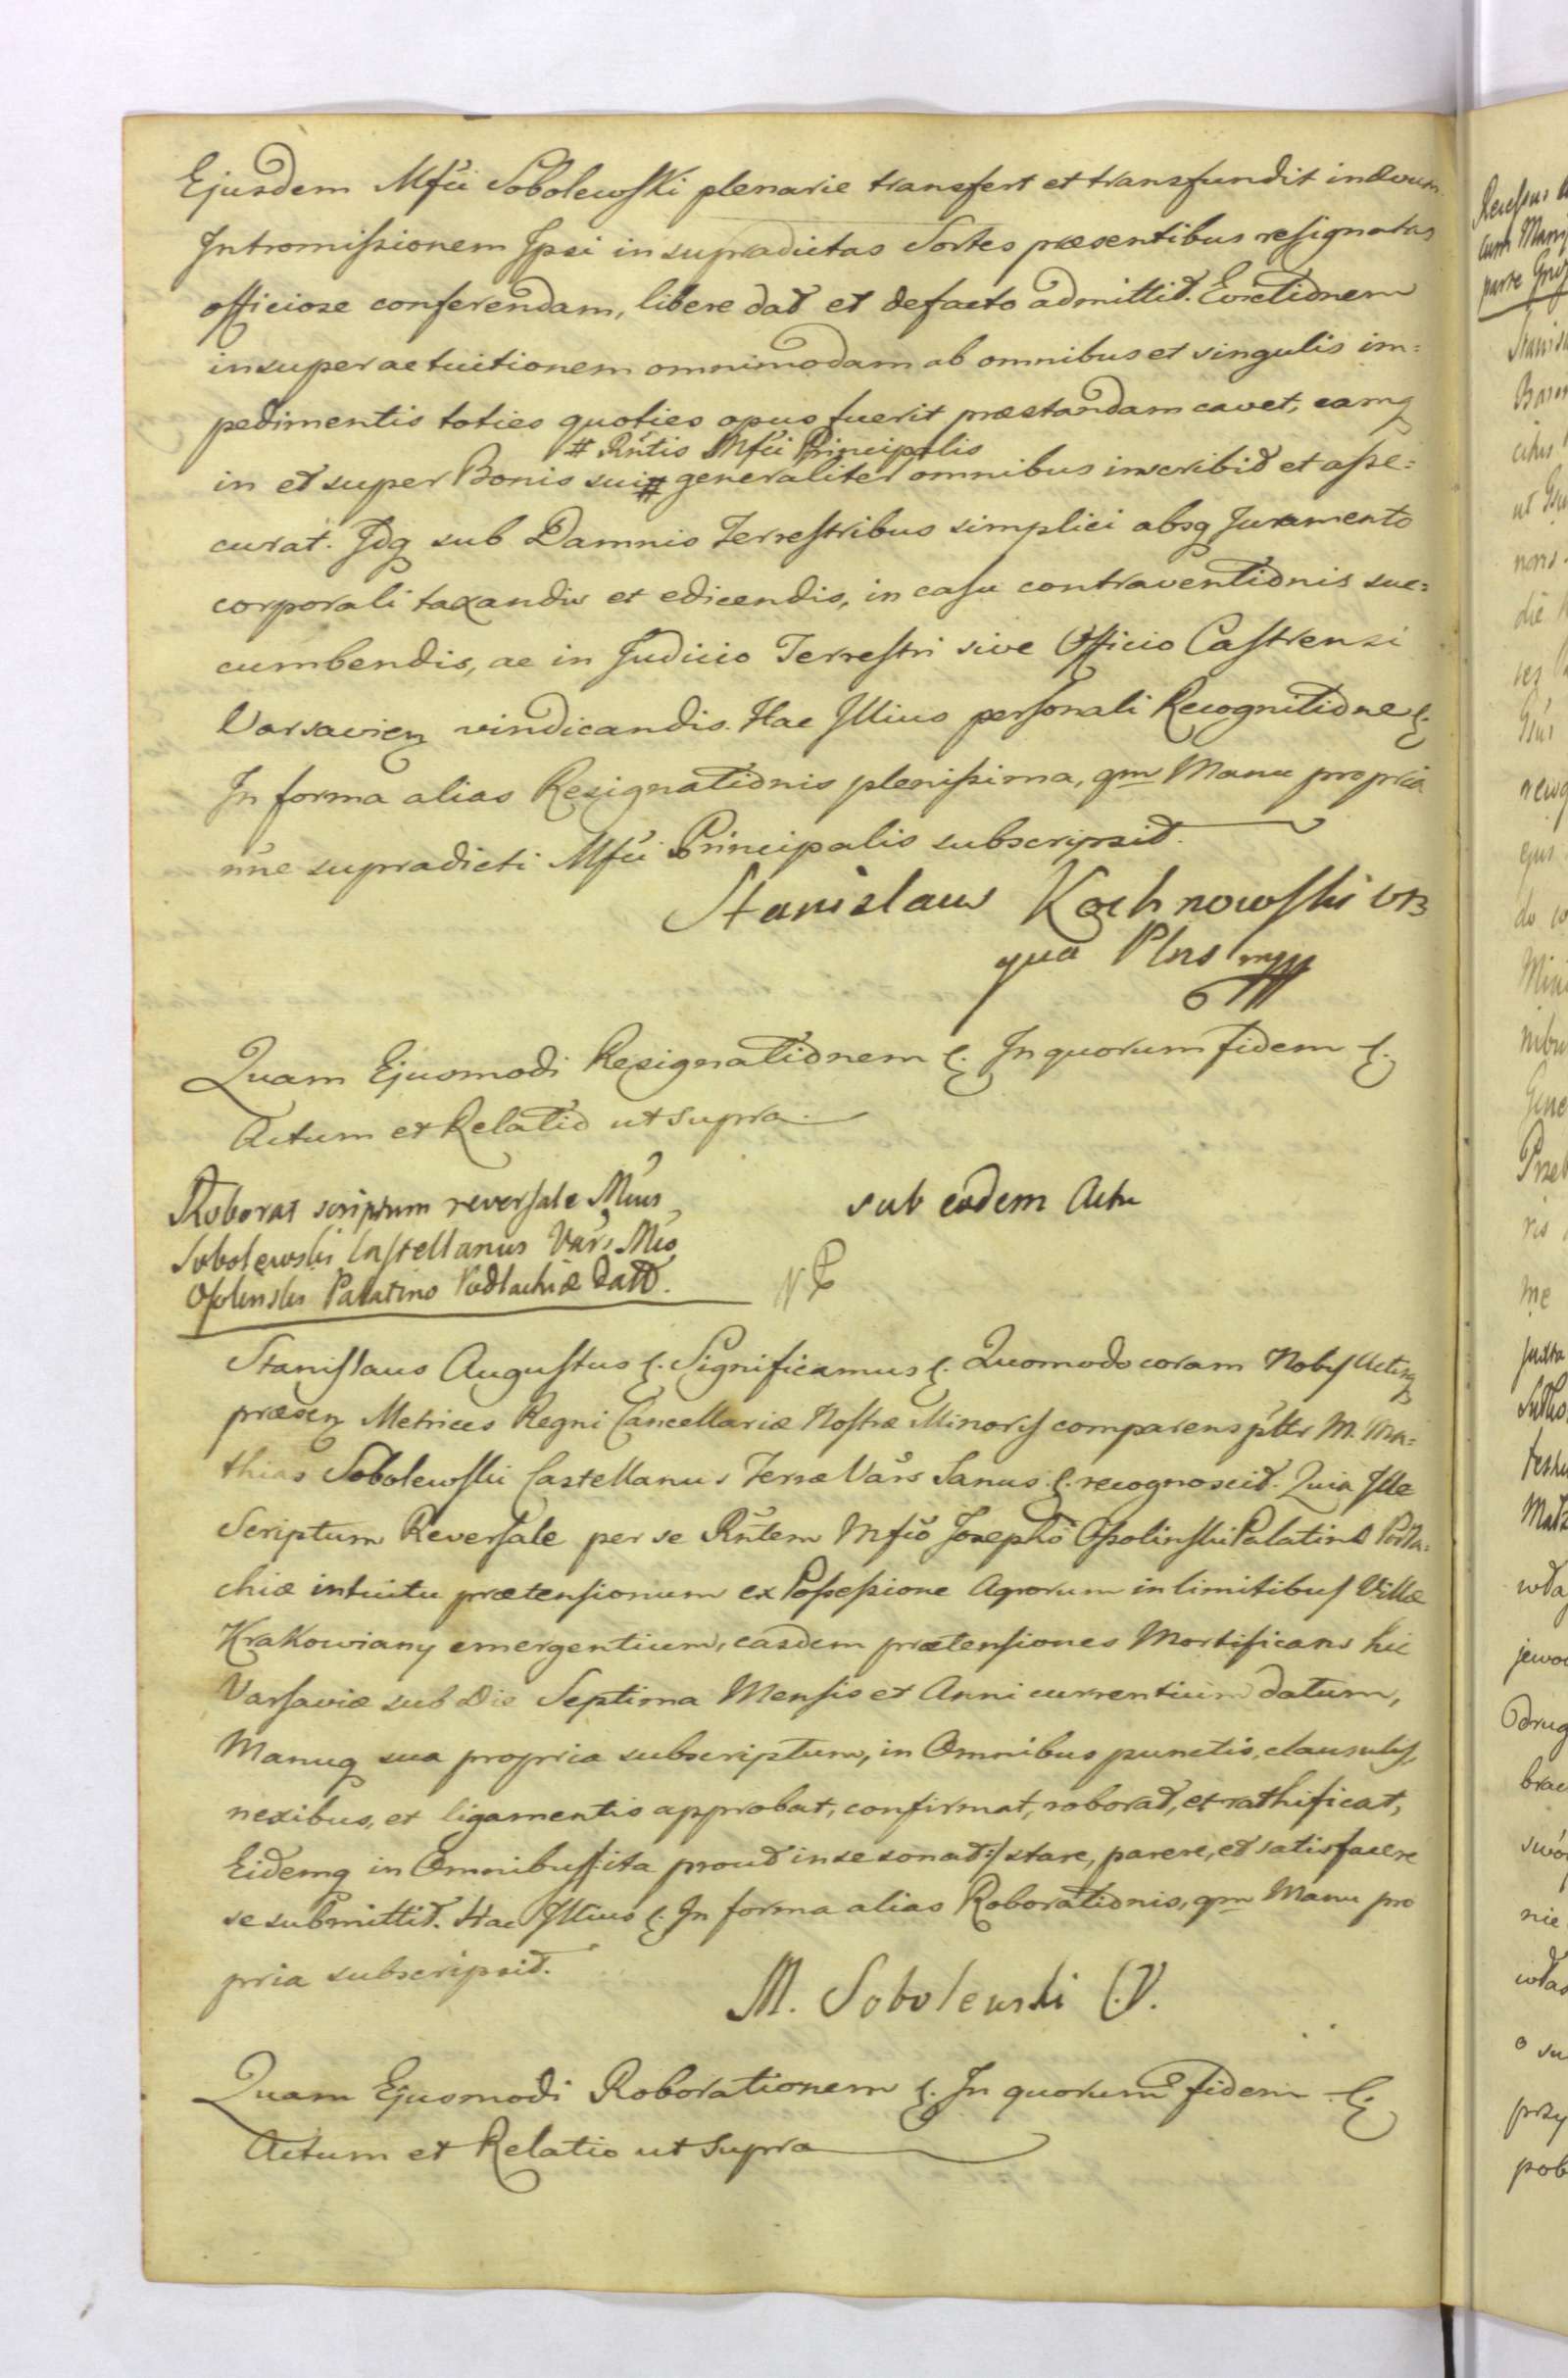 Ejusdem Mfci Sobolewski plenarie transfert et transfundit in ævum.
Intromissionem Ipsi in supradictas Sortes præsentibus resignatas
officiose conferendam, libere dat et defacto admittit. Evictionem
insuper ac tuitionem omnimodam ab omnibus et singulis im=
pedimentis toties quoties opus fuerit præstandam cavet, eamq
# Rntis Mfci Principalis
in et super Bonis sui # generaliter omnibus inscribit et asse=
curat. Idq sub Damnis Terrestribus simplici absq Juramento
corporali taxandis et edicendis, in casu contraventionis suc=
cumbendis, ac in Judicio Terrestri sive Officio Castrensi
Varsavien vindicandis. Hac Illius personali Recognitione &.
In forma alias Resignationis plenissima, qm Manu propria
nne supradicti Mfci Principalis subscripsit.
Stanislaus Kochnowski
qua Plns mpp
Quam Ejusmodi Resignationem &. In quorum fidem &.
Actum et Relatio ut supra.
Roborat scriptum reversale Mcus
Sobolewski Castellanus Vars. Mco
Ossolinski Palatino Podlachiæ Datt.
sub eodem Actu
Stanislaus Augustus &. Significamus &. Quomodo coram Nobis Actisq
præsen Metrices Regni Cancellariæ Nostræ Minoris comparens pltr M. Ma=
thias Sobolewski Castellanus Terræ Vars Sanus &. recognoscit. Quia Ille
Scriptum Reversale per se Rntem Mfco Josepho Ossolinski Palatino Podla=
chiæ intuitu prætensionum ex Possessione Agrorum in limitibus Villæ
Krakowiany emergentium, easdem prætensiones Mortificans hic
Varsaviæ sub Die Septima Mensis et Anni currentium datum,
Manuq sua propria subscriptum, in Omnibus punctis, clausulis,
nexibus, et ligamentis approbat, confirmat, roborat, et rathificat,
Eidemq in Omnibus /: ita prout in se sonat :/ stare, parere, et satisfacere
se submittit. Hac Illius &. In forma alias Roborationis, qm Manu pro
pria subscripsit.
M. Sobolewski C.V.
Quam Ejusmodi Roborationem &. In quorum fidem &.
Actum et Relatio ut supra